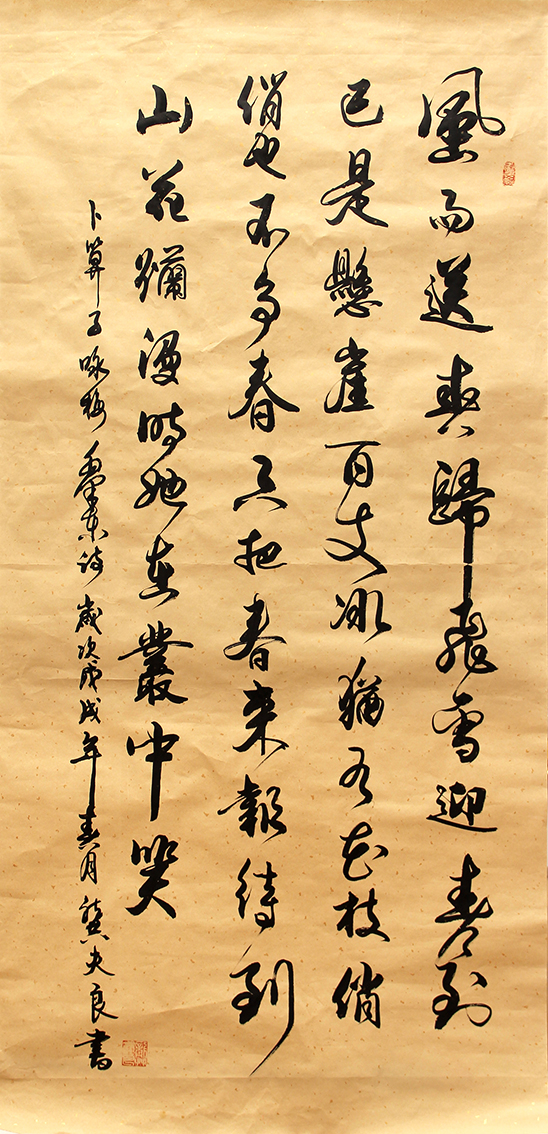 風雨送春歸飛雪迎春到
已是懸崖百丈冰猶有花枝俏
俏也不爭春只把春來報待到
山花爛漫時她在叢中笑
卜算子咏梅 毛澤東詩 歲次戊戌年春月 龔夫良書